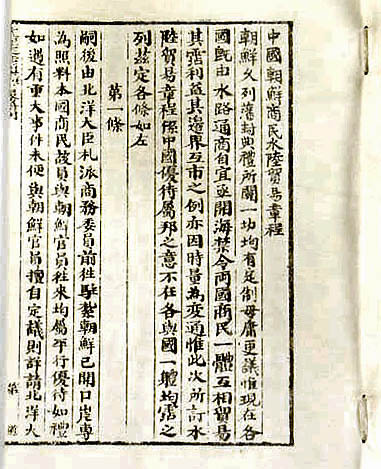 中國朝鮮商民水陸貿易章程
朝鮮久列藩封典禮所關一切均有定制毋庸更議惟現在各
國既由水路通商自宜亟開海禁令兩國商民一體互相貿易
共霑利益其邊界互市之例亦因時量為變通惟此次所訂水
陸貿易章程係中國優待屬邦之意不在各與國一體均霑之
列茲定各條如左
第一條
嗣後由北洋大臣札派商務委員前往駐紮朝鮮已開口岸專
為照料本國商民該員與朝鮮官員往來均屬平行優待如禮
如遇有重大事件未便與朝鮮官員擅自定議則詳請北洋大